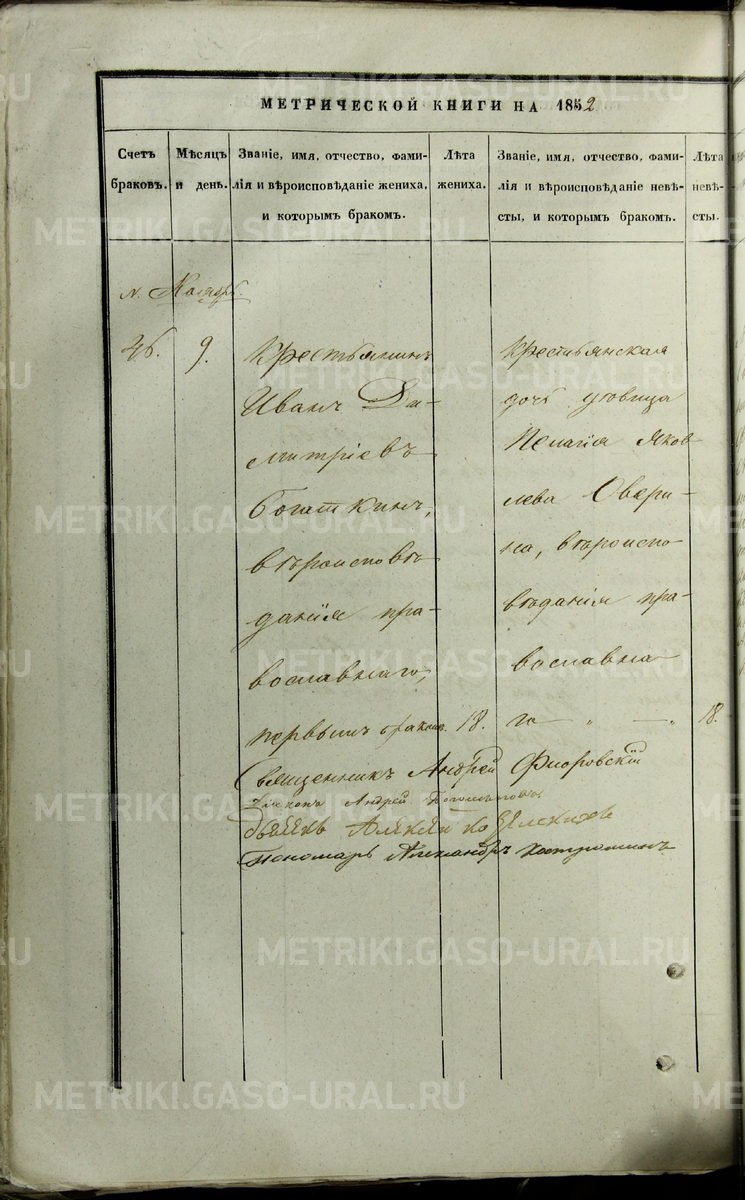 МЕТРИЧЕСКОЙ КНИГИ НА 1852
Счетъ браковъ.
Мѣсяцъ и день.
Званіе, имя, отчество, фами-
лія и вѣроисповѣданіе жениха,
и которымъ бракомъ.
Лѣта жениха.
Званіе, имя, отчество, фами-
лія и вѣроисповѣданіе невѣ-
сты, и которымъ бракомъ.
Лѣта невѣ-
сты.
Ноябрь.
9.
Крестьянинъ
Иванъ Ди-
митріевъ
Богаткинъ,
вѣроисповѣ
данія пра-
вославнаго,
первымъ бракомъ.
18.
Крестьянская
дочь
Пелагія Яков
лева Овери-
на, вѣроиспо-
вѣданія пра-
вославна
го — „ — „
18.
Священникъ Андрей Флоровскій
Діаконъ Андрей
Дьячекъ
Пономарь Александръ
METRIKI.GASO-URAL.RU